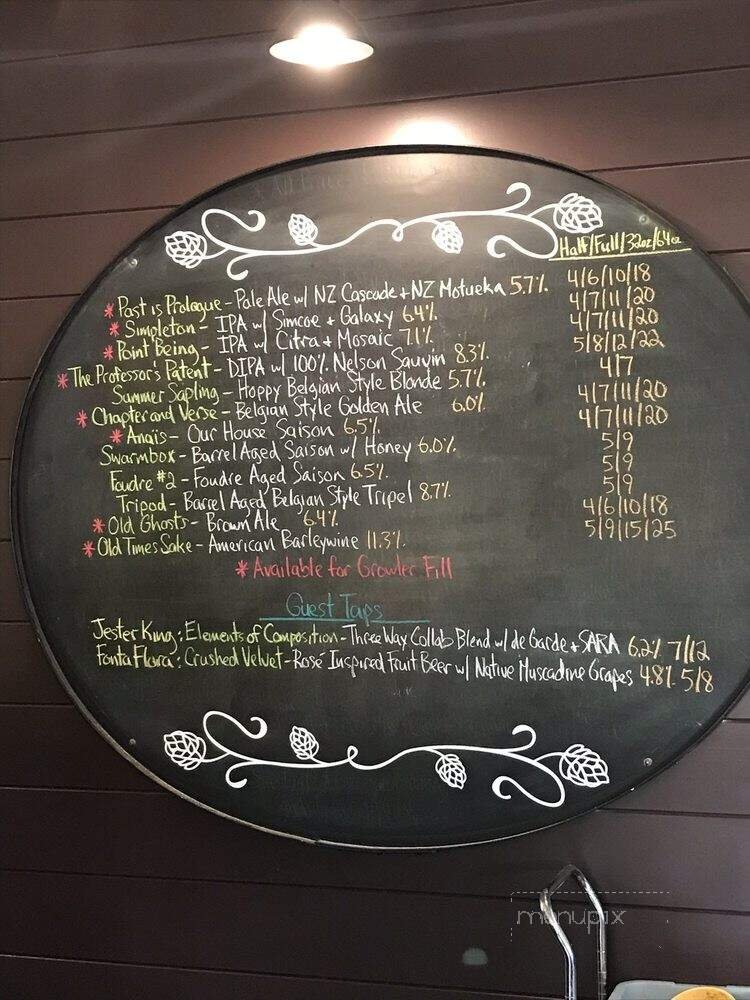 Half/Full/32oz/64oz
* Past is Prologue - Pale Ale w/ NZ Cascade + NZ Motueka 5.7% 4/6/10/18
* Simpleton - IPA w/ Simcoe + Galaxy 6.4% 4/7/11/20
* Point Being - IPA w/ Citra + Mosaic 7.1% 4/7/11/20
* The Professor's Patent - DIPA w/ 100% Nelson Sauvin 8.3% 5/8/12/22
Summer Sapling - Hoppy Belgian Style Blonde 5.7% 4/7
* Chapter and Verse - Belgian Style Golden Ale 6.0% 4/7/11/20
* Anais - Our House Saison 6.5% 4/7/11/20
Swarmbox - Barrel Aged Saison w/ Honey 6.0% 5/9
Foudre #2 - Foudre Aged Saison 6.5% 5/9
Tripod - Barrel Aged Belgian Style Tripel 8.7% 5/9
* Old Ghosts - Brown Ale 6.4% 4/6/10/18
* Old Times Sake - American Barleywine 11.3% 5/9/15/25
* Available for Growler Fill
Guest Taps
Jester King: Elements of Composition - Three Way Collab Blend w/ de Garde + SARA 6.2% 7/12
Fonta Flora: Crushed Velvet - Rosé Inspired Fruit Beer w/ Native Muscadine Grapes 4.8% 5/8
menupix